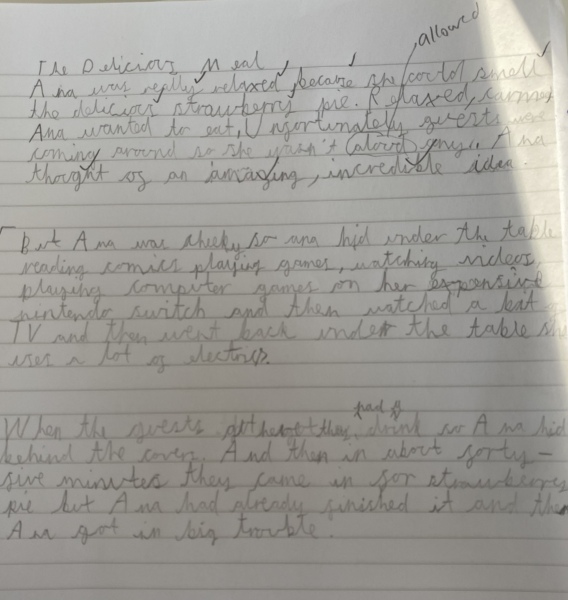 allowed
The Delicious Meal
Ana was really relaxed, because she could smell
the delicious strawberry pie. Relaxed,
Ana wanted to eat, Unfortunately guests were
coming around so she wasn't (aloud) any. Ana
thought of an amazing, incredible idea.
But Ana was cheeky so ana hid under the table
reading comics playing games, watching videos,
playing computer games on her expensive
nintendo switch and then watched a bit of
TV and then went back under the table she
uses a lot of
had a
When the guests drink so Ana hid
behind the covers. And then in about forty-
five minutes they came in for strawberry
pie but Ana had already finished it and then
Ana got in big trouble.